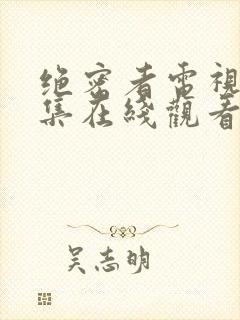 绝密者電視
集在綫觀看
吴志明